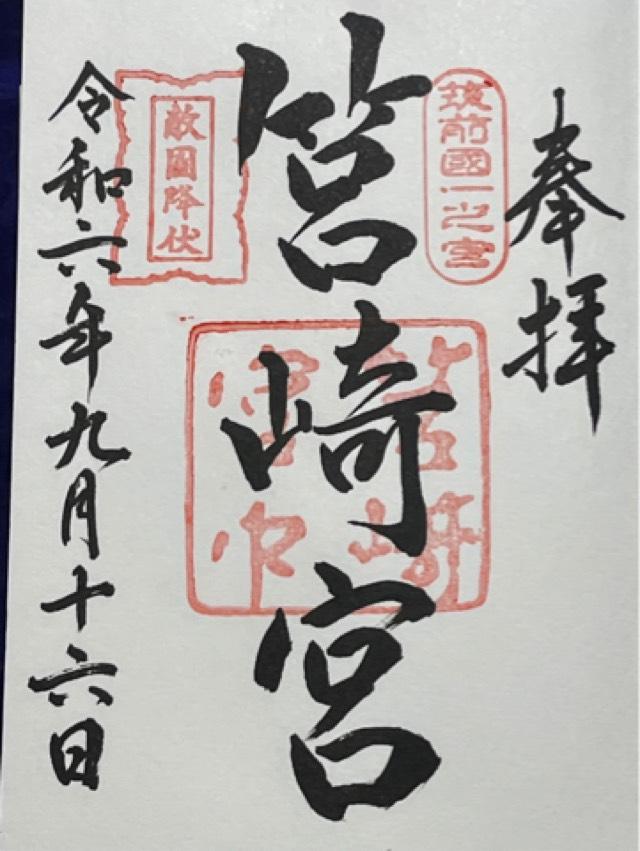 奉拝
筑前國一之宮
筥崎宮
筥崎
宮印
敵國降伏
令和六年九月十六日